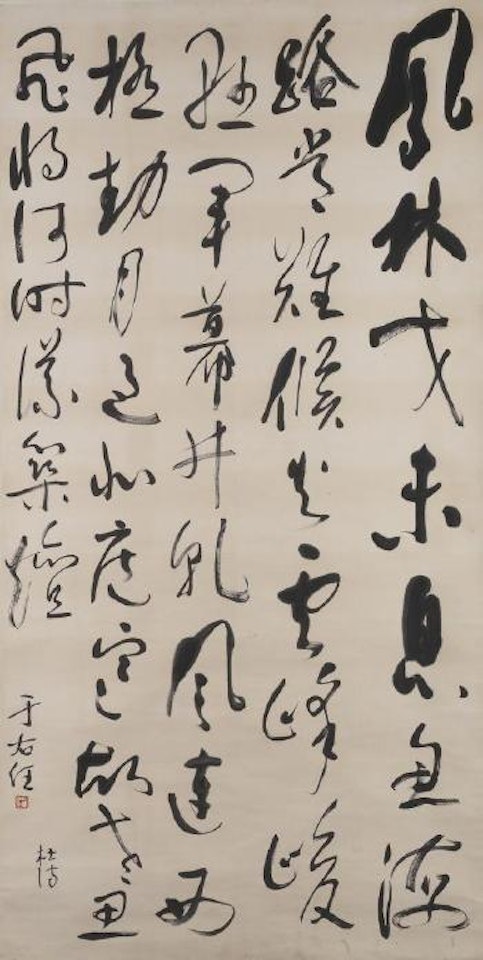 鳳林戈未息魚海
路常難候火雲峰峻
懸軍幕井乾風連西
極動月過北庭寒故老思
飛將何時議築壇
杜詩
于右任